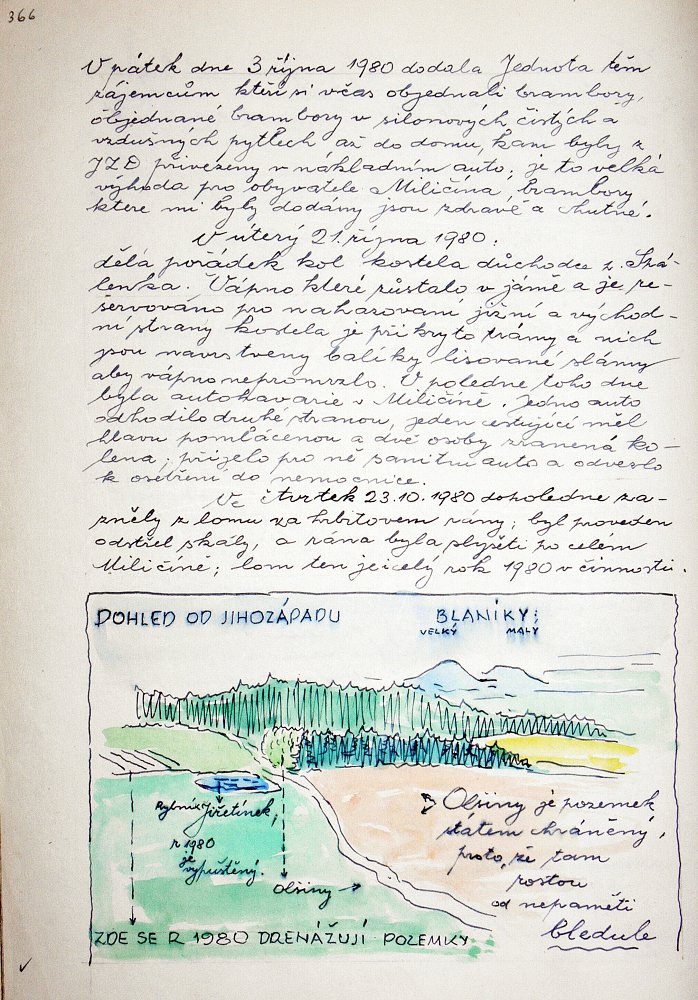 366
V pátek dne 3 října 1980 dodala Jednota těm
zájemcům kteří si včas objednali brambory,
objednané brambory v silonových čistých a
vzdušných pytlech až do domu, kam byly z
JZD přivezeny v nákladním auto; je to velká
výhoda pro obyvatele Miličína, brambory
ktere mi byly dodány jsou zdravé a chutné.
V úterý 21. října 1980.
dělá pořádek kol kostela důchodce z Ská-
lenka. Vápno které zůstalo v jámě a je re-
servováno pro nahazovaní jižní a východ-
ní strany kostela je přikryto trámy a nich
jsou navrstveny balíky lisované slámy
aby vápno nepromrzlo. V poledne toho dne
byla autohavarie v Miličíně. Jedno auto
odhodilo druhé stranou, jeden cestující měl
hlavu pomlácenou a dvě osoby zranená ko-
lena; přijelo pro ně sanitní auto a odvezlo
k ošetření do nemocnice.
Ve čtvrtek 23.10.1980 dopoledne za-
zněly z lomu za hřbitovem rány; byl proveden
odstřel skály, a rána byla slyšeti po celém
Miličíně; lom ten je celý rok 1980 v činnosti.
POHLED OD JIHOZÁPADU
BLANÍKY;
VELKÝ MALÝ
Rybník Jiřetínek,
r 1980
je
vypuštěný.
Olšiny
Olšiny je pozemek
státem chráněný,
proto, že tam
rostou
od nepaměti
bledule
ZDE SE R 1980 DRENÁŽUJÍ POZEMKY